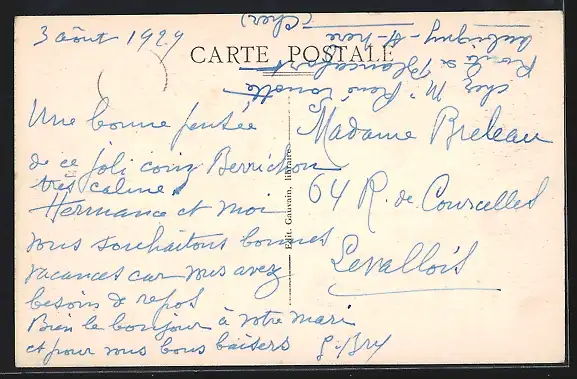 3 août 1929
CARTE POSTALE
chez Mr René
Route de Blancafort
Aubigny-s-Nère
(Cher)
Une bonne pensée
de ce joli coin Berrichon
très calme.
Hermance et moi
vous souhaitons bonnes
vacances car vous avez
besoin de repos
Bien le bonjour à votre mari
et pour vous bons baisers
G. Bry
Edit. Gauvain, libraire
Madame Breleau
64 R. de Courcelles
Levallois